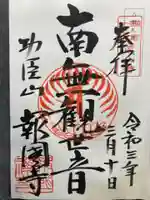 奉拝
令和三年
三月十日
南無観世音
功臣山
報国寺